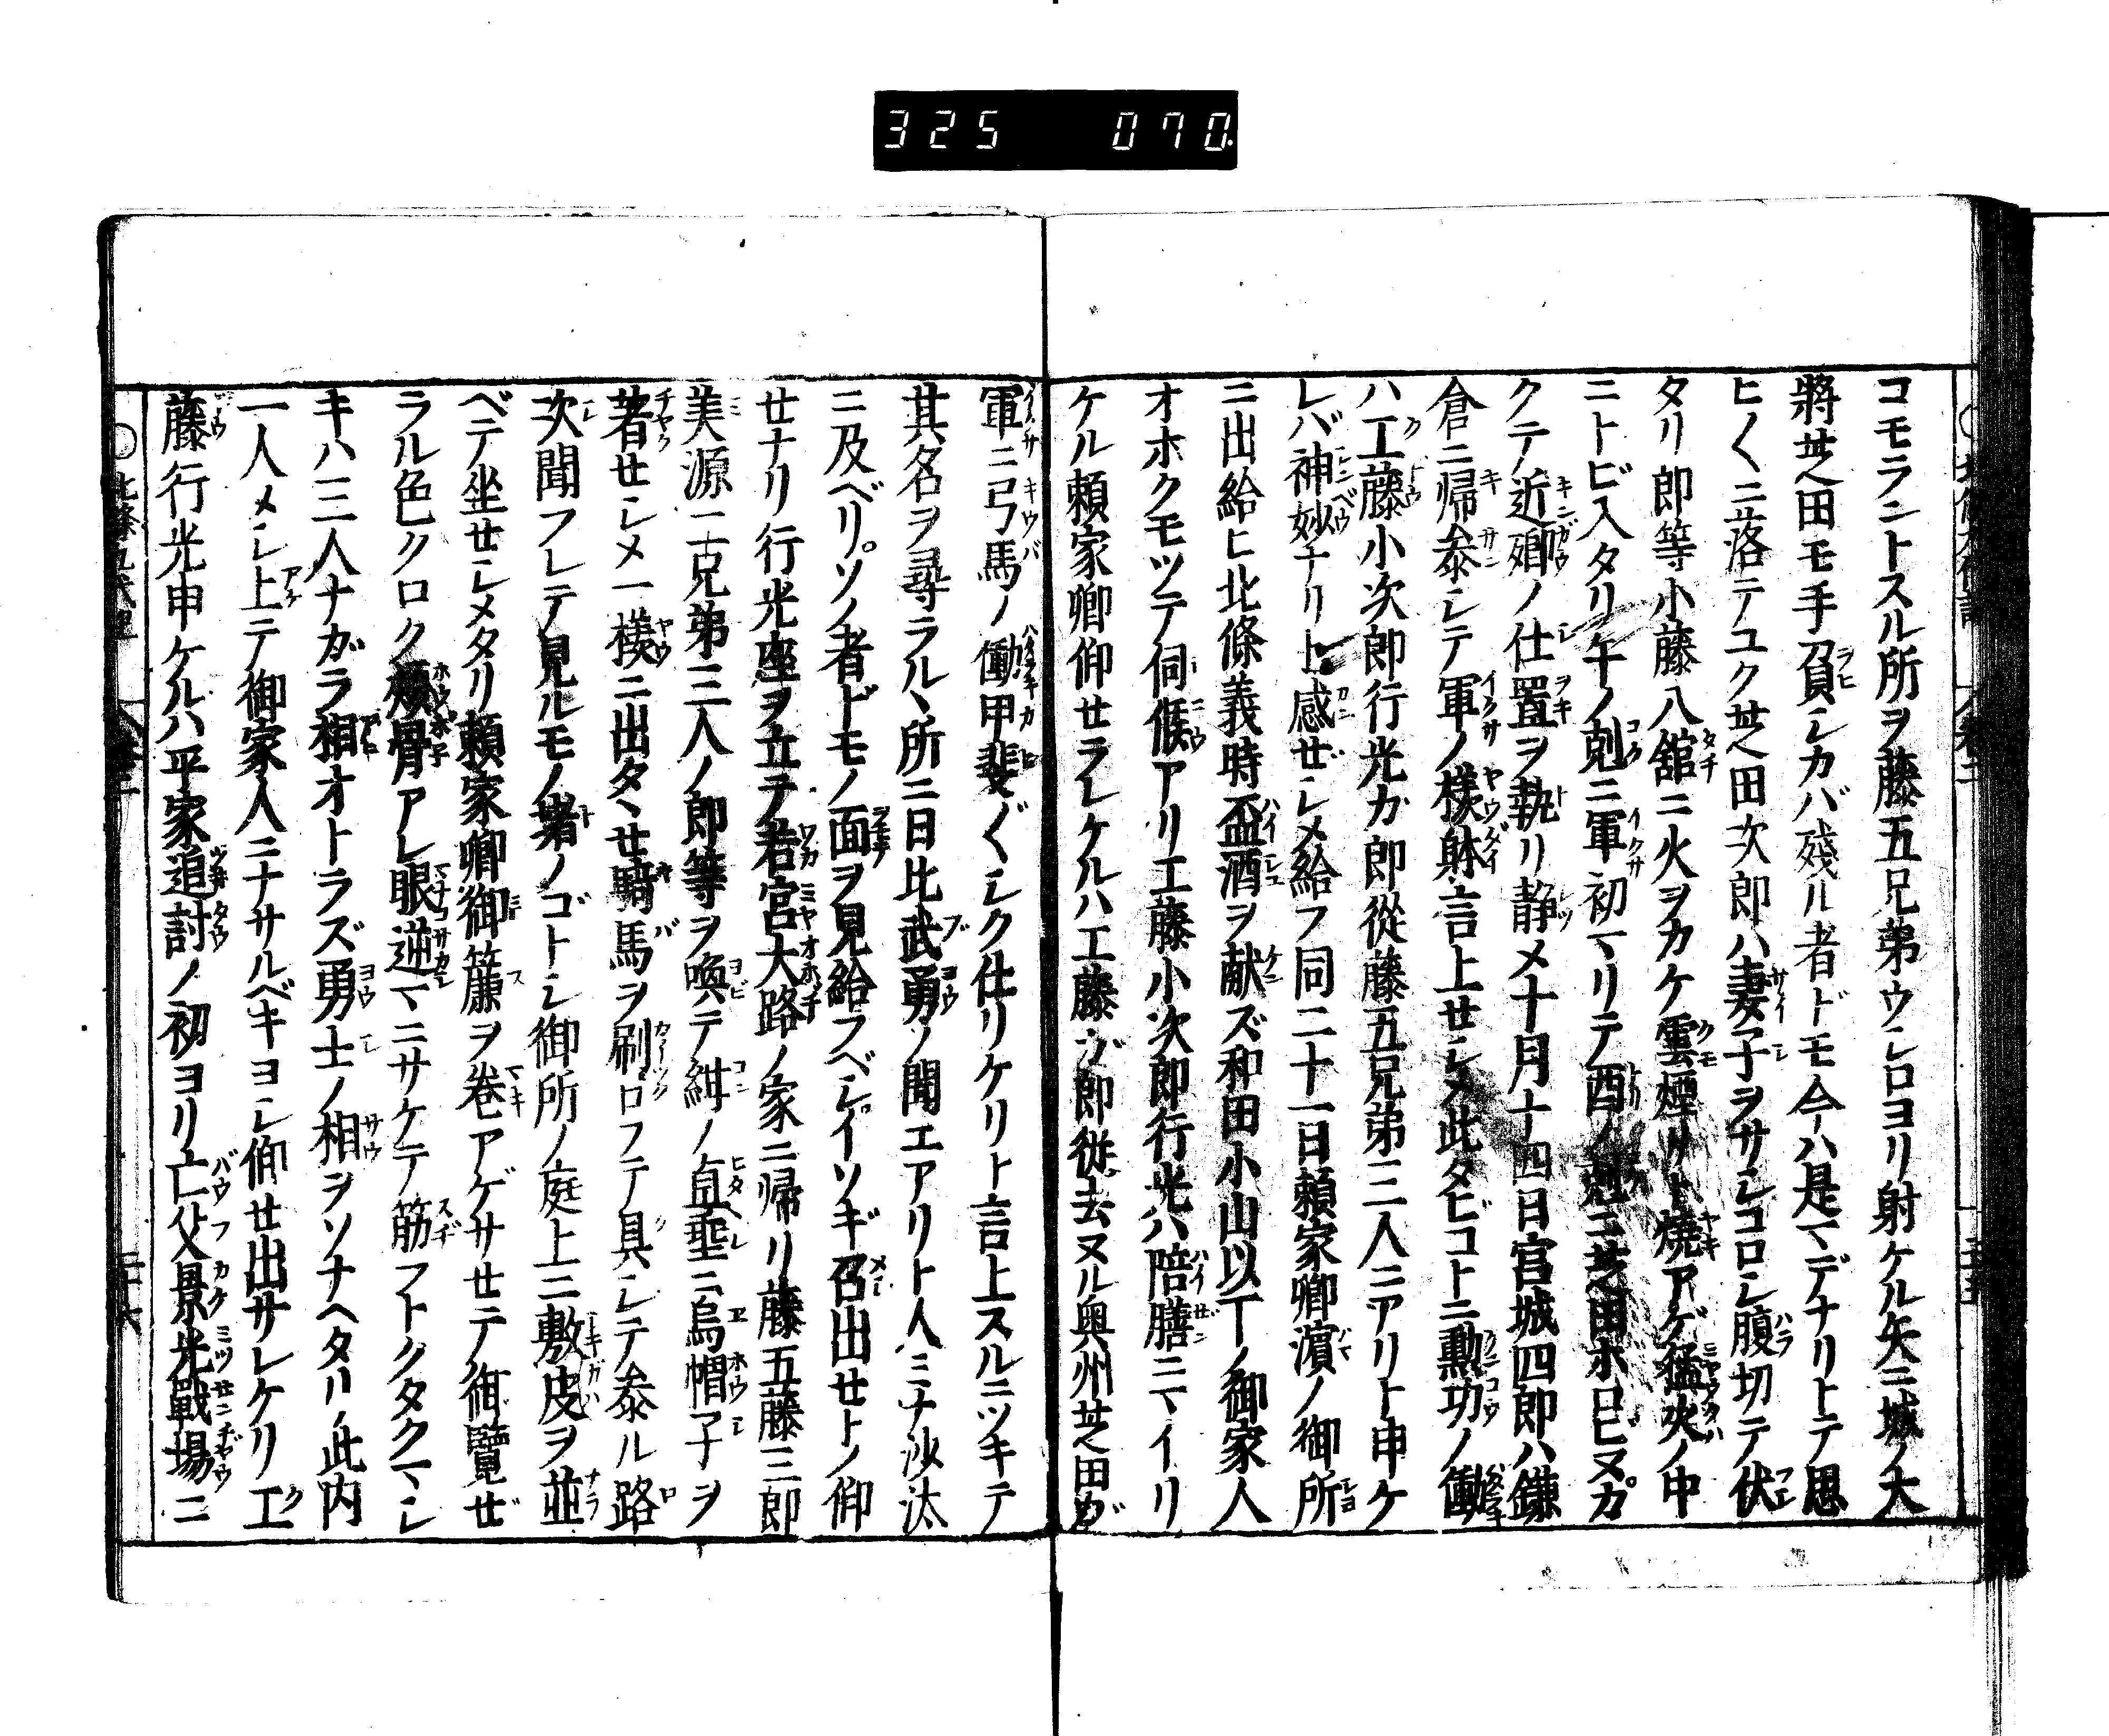 325 070
コモラントスル所ヲ藤五兄弟ウシロヨリ射ケル矢ニ城ノ大
將芝田モ手負シカバ殘ル者ドモ今ハ是マデナリトテ思
ヒ〱ニ落テユク芝田次郎ハ妻子ヲサシコロシ腹切テ伏
タリ郎等小藤八舘ニ火ヲカケ雲煙ト燒アゲ猛火ノ中
ニトビ入タリ午ノ剋ニ軍初マリテ酉ノ剋ニ芝田ホロビヌカ
クテ近郷ノ仕置ヲ執リ静メ十月十四日宮城四郎ハ鎌
倉ニ帰参シテ軍ノ樣躰言上セシメ此タビコトニ勲功ノ働
ハ工藤小次郎行光カ郎從藤五兄弟三人ニアリト申ケ
レバ神妙ナリト感ゼシメ給フ同二十一日頼家卿濵ノ御所
ニ出給ヒ北條義時盃酒ヲ献ズ和田小山以下ノ御家人
オホクモツテ伺候アリ工藤小次郎行光ハ陪膳ニマイリ
ケル頼家卿仰セラレケルハ工藤ガ郎從去ヌル奥州芝田ガ
軍ニ弓馬ノ働甲斐〲シク仕リケリト言上スルニツキテ
其名ヲ尋ラルヽ所ニ日比武勇ノ聞エアリト人ミナ沙汰
ニ及ベリソノ者ドモノ面ヲ見給フベシイソギ召出セトノ仰
セナリ行光座ヲ立テ若宮大路ノ家ニ帰リ藤五藤三郎
美源二兄弟三人ノ郎等ヲ喚テ紺ノ直垂ニ烏帽子ヲ
著セシメ一樣ニ出タヽセ騎馬ヲ刷ロフテ具シテ参ル路
次聞フレテ見ルモノ堵ノゴトシ御所ノ庭上ニ敷皮ヲ並
ベテ坐セシメタリ頼家卿御簾ヲ巻アゲサセテ御覽ゼ
ラル色クロク頬骨アレ眼逆マニサケテ筋フトクタクマシ
キハ三人ナガラ相オトラズ勇士ノ相ヲソナヘタリ此内
一人メシ上テ御家人ニナサルベキヨシ仰セ出サレケリ工
藤行光申ケルハ平家追討ノ初ヨリ亡父景光戰場ニ